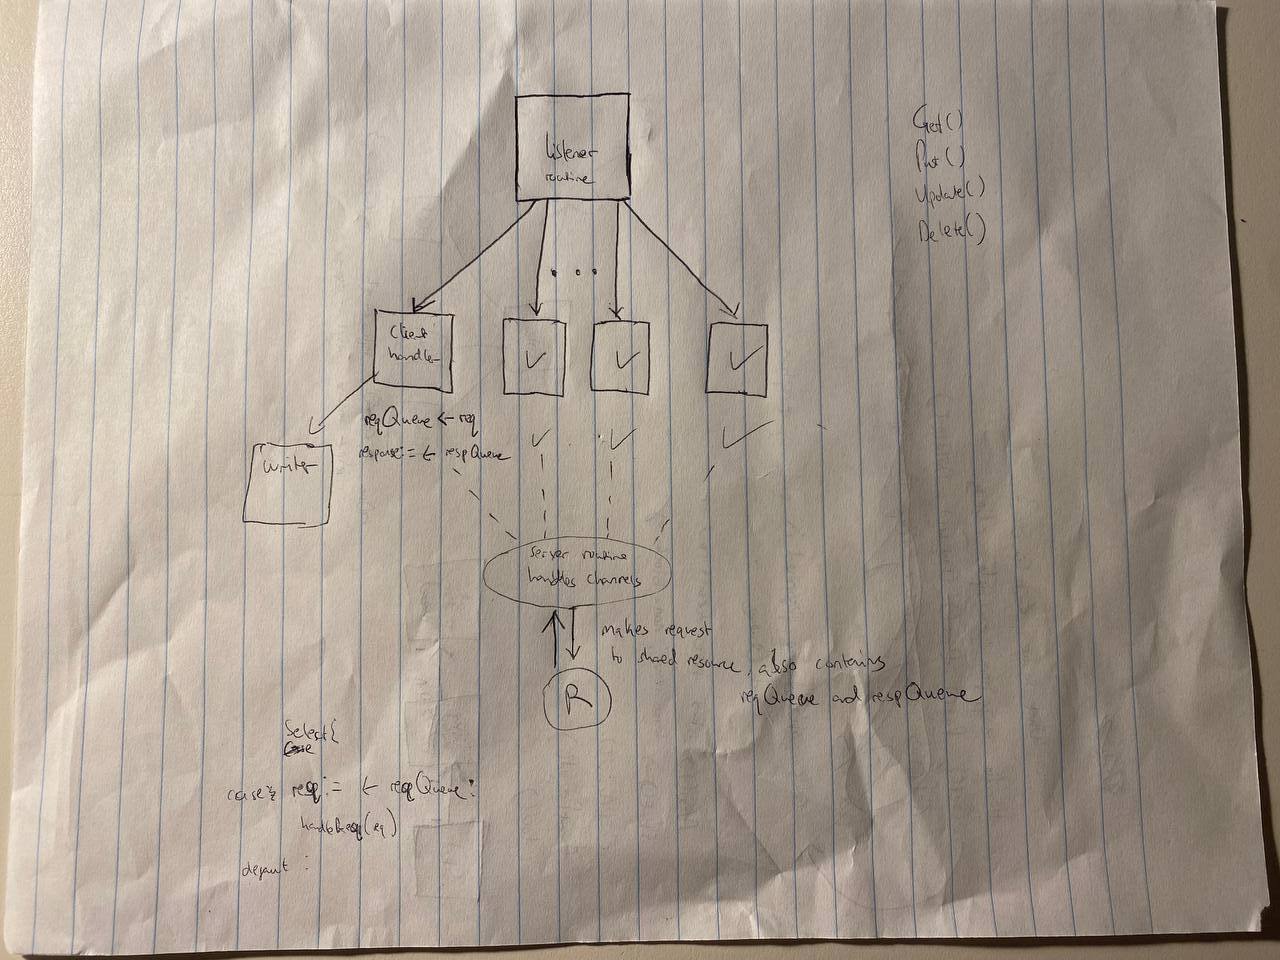 Listener
routine
Get()
Put()
Update()
Delete()
. . .
Client
handler
reqQueue <- req
response := <- respQueue
writer
server routine
handles channels
makes request
to shared resource, also contains
reqQueue and respQueue
R
Select{
case req := <- reqQueue:
handleReq(req)
default :